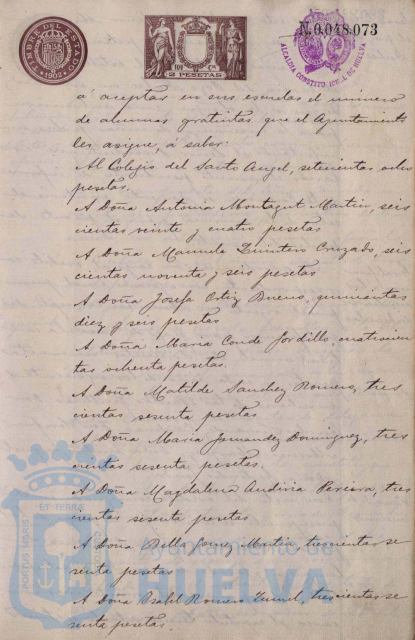 TIMBRE DEL ESTADO
1902
2 PESETAS
N.0,048,073
ALCALDIA CONSTITUCIONAL DE HUELVA
á aceptar en sus escuelas el número
de alumnas gratuitas que el Ayuntamiento
les asigne, á saber:
Al Colegio del Santo Angel, setecientas ocho
pesetas.
A Doña Antonia Montagut Martin, seis
cientas veinte y cuatro pesetas
A Doña Manuela Quintero Cruzado, seis
cientas noventa y seis pesetas
A Doña Josefa Ortiz Bueno, quinientas
diez y seis pesetas
A Doña Maria Conde Jordillo, cuatrocien
tas ochenta pesetas.
A Doña Matilde Sanchez Romero, tres
cientas sesenta pesetas
A Doña Maria Fernandez Dominguez, tres
cientas sesenta pesetas.
A Doña Magdalena Pereira, tres
cientas sesenta pesetas
A Doña Bella Martin, trescientas se
senta pesetas
A Doña Isabel Romero, trescientas se
senta pesetas.
PORTUS MARIS
ET TERRÆ
Ayuntamiento de
HUELVA